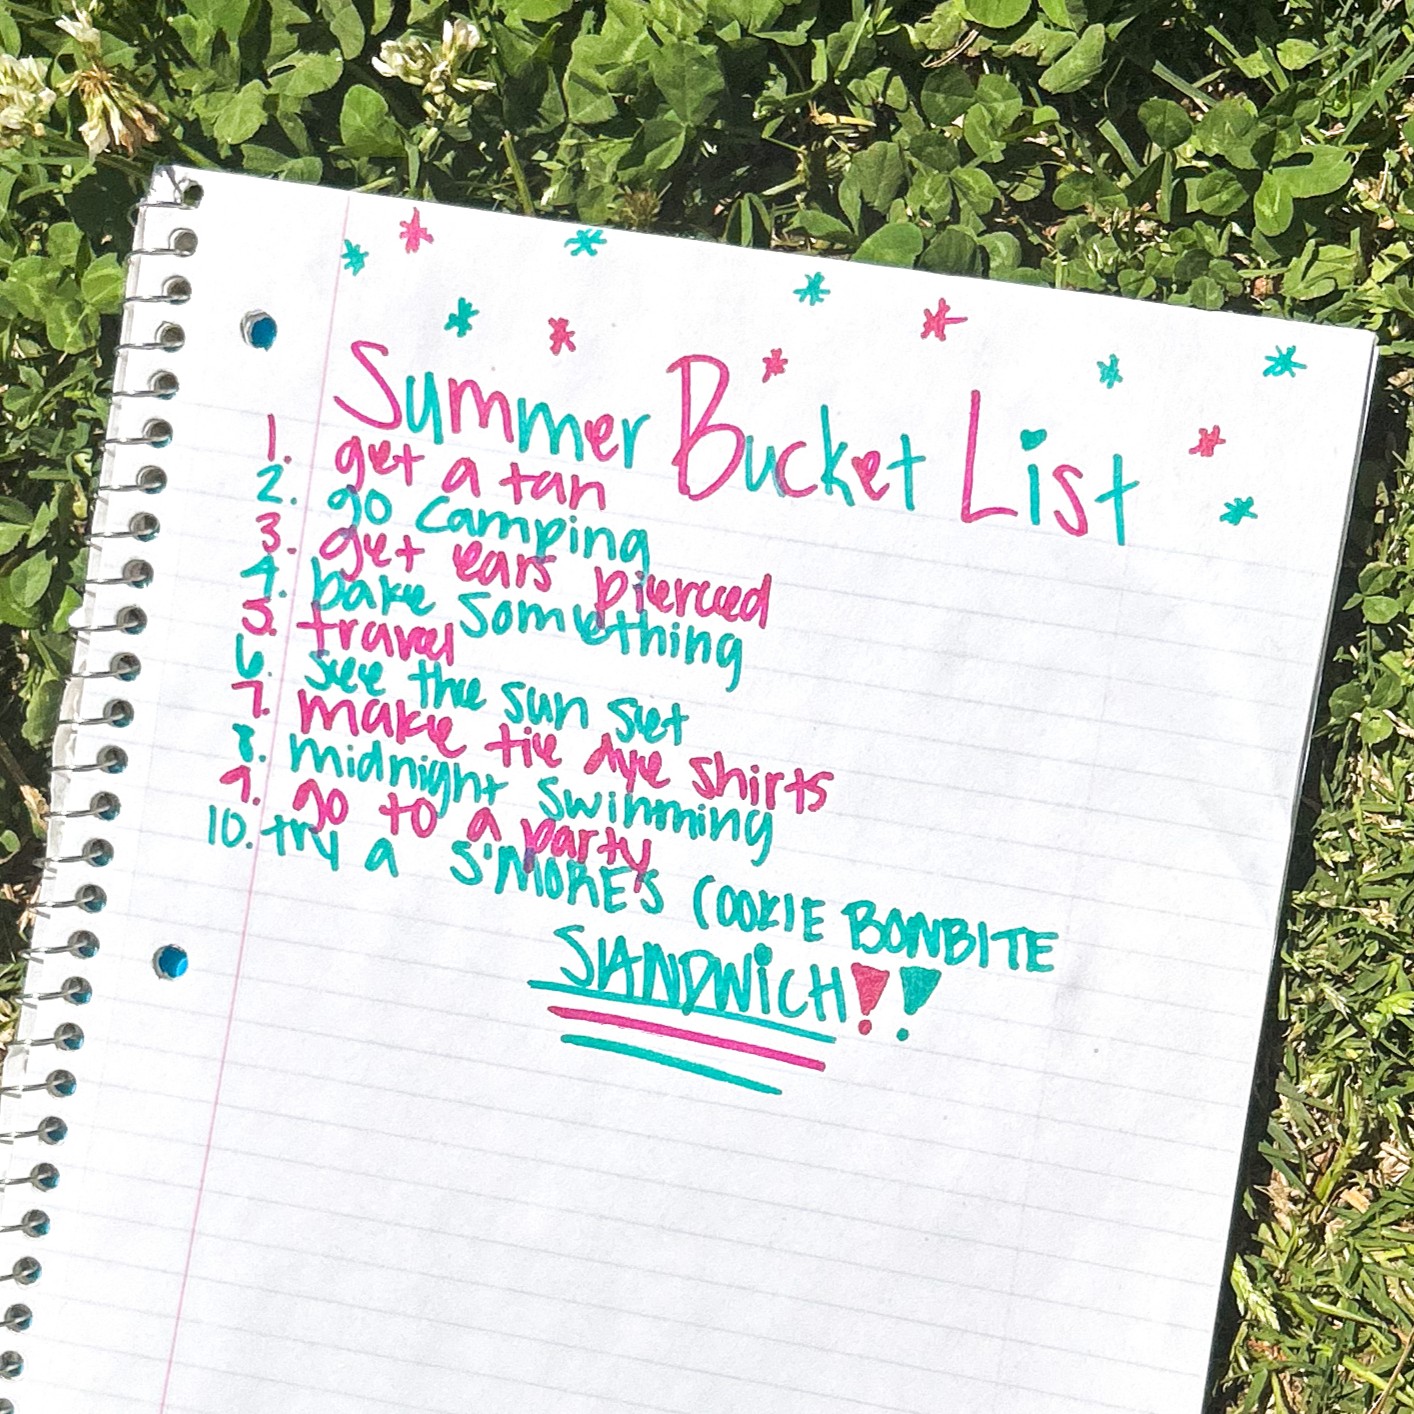 Summer Bucket List
1. get a tan
2. go camping
3. get ears pierced
4. bake something
5. travel
6. see the sun set
7. make tie dye shirts
8. midnight swimming
9. go to a party
10. try a S'MORE'S COOKIE BONBITE
SANDWiCH!!